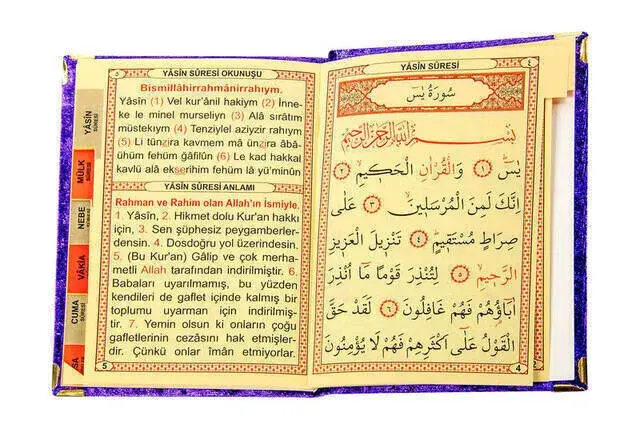 YÂSİN SÛRESİ
٤
سُورَةُ يٰسٓ
بِسْمِ اللّٰهِ الرَّحْمٰنِ الرَّحِيمِ
يٰسٓ ﴿١﴾ وَالْقُرْاٰنِ الْحَك۪يمِ ﴿٢﴾
اِنَّكَ لَمِنَ الْمُرْسَل۪ينَ ﴿٣﴾ عَلٰى
صِرَاطٍ مُسْتَق۪يمٍ ﴿٤﴾ تَنْز۪يلَ الْعَز۪يزِ
الرَّح۪يمِ ﴿٥﴾ لِتُنْذِرَ قَوْمًا مَٓا اُنْذِرَ
اٰبَٓاؤُ۬هُمْ فَهُمْ غَافِلُونَ ﴿٦﴾ لَقَدْ حَقَّ
الْقَوْلُ عَلٰٓى اَكْثَرِهِمْ فَهُمْ لَا يُؤْمِنُونَ
4
٥
YÂSİN SÛRESİ OKUNUŞU
Bismillâhirrahmânirrahıym.
Yâsîn (1) Vel kur'ânil hakiym (2) İnne-
ke le minel murseliyn (3) Alâ sırâtım
müstekıym (4) Tenziylel aziyzir rahıym
(5) Li tünzira kavmem mâ ünzıra âbâ-
ühüm fehüm gâfilûn (6) Le kad hakkal
kavlü alâ ekserihim fehüm lâ yü'minûn
YÂSİN SÛRESİ ANLAMI
Rahman ve Rahim olan Allah'ın ismiyle.
1. Yâsîn, 2. Hikmet dolu Kur'an hakkı
için, 3. Sen şüphesiz peygamberler-
densin. 4. Dosdoğru yol üzerindesin.
5. (Bu Kur'an) Gâlip ve çok merha-
metli Allah tarafından indirilmiştir. 6.
Babaları uyarılmamış, bu yüzden
kendileri de gaflet içinde kalmış bir
toplumu uyarman için indirilmiş-
tir. 7. Yemin olsun ki onların çoğu
gafletlerinin cezasını hak etmişler-
dir. Çünkü onlar îmân etmiyorlar.
5
YÂSİN
SÛRESİ
MÜLK
SÛRESİ
NEBE
SÛRESİ
VÂKIA
SÛRESİ
CUMA
SÛRESİ